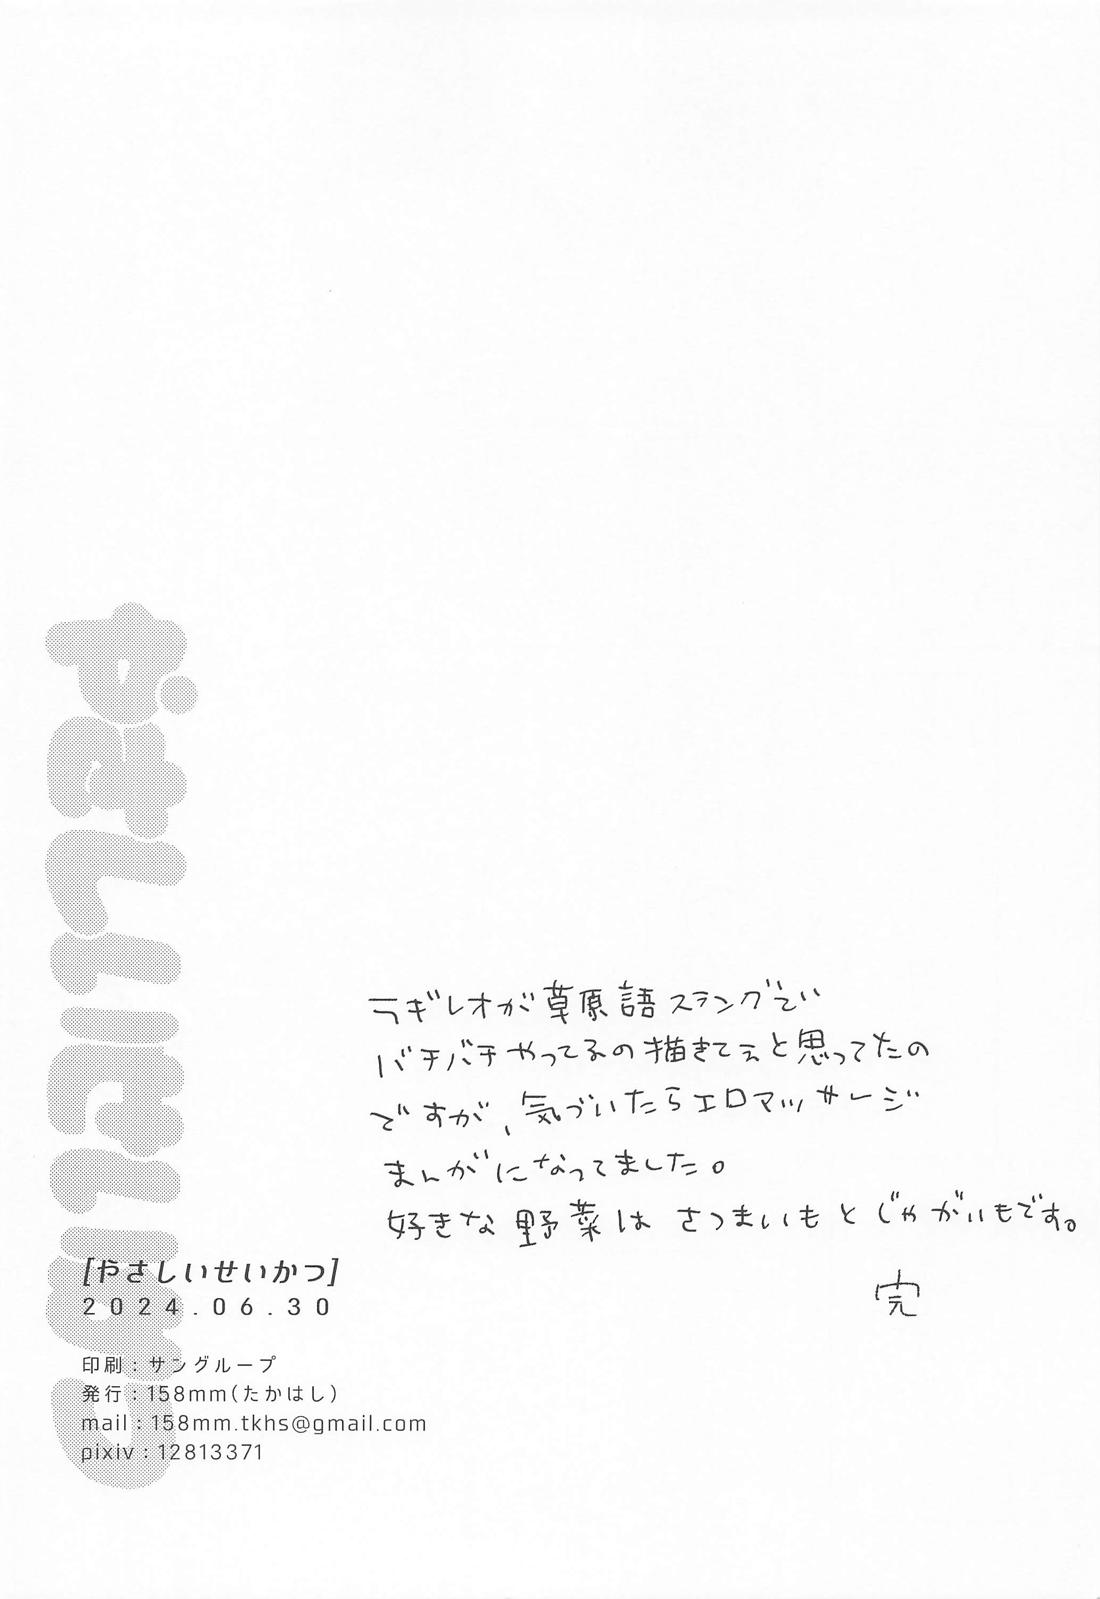 やさしいせいかつ
ラギレオが草原語スラングでい
バチバチやってるの描きてぇと思ってたの
ですが、気づいたらエロマッサージ
まんがになってました。
好きな野菜は さつまいも と じゃがいもです。
完
[やさしいせいかつ]
2024.06.30
印刷：サングループ
発行：158mm(たかはし)
mail：158mm.tkhs@gmail.com
pixiv：12813371